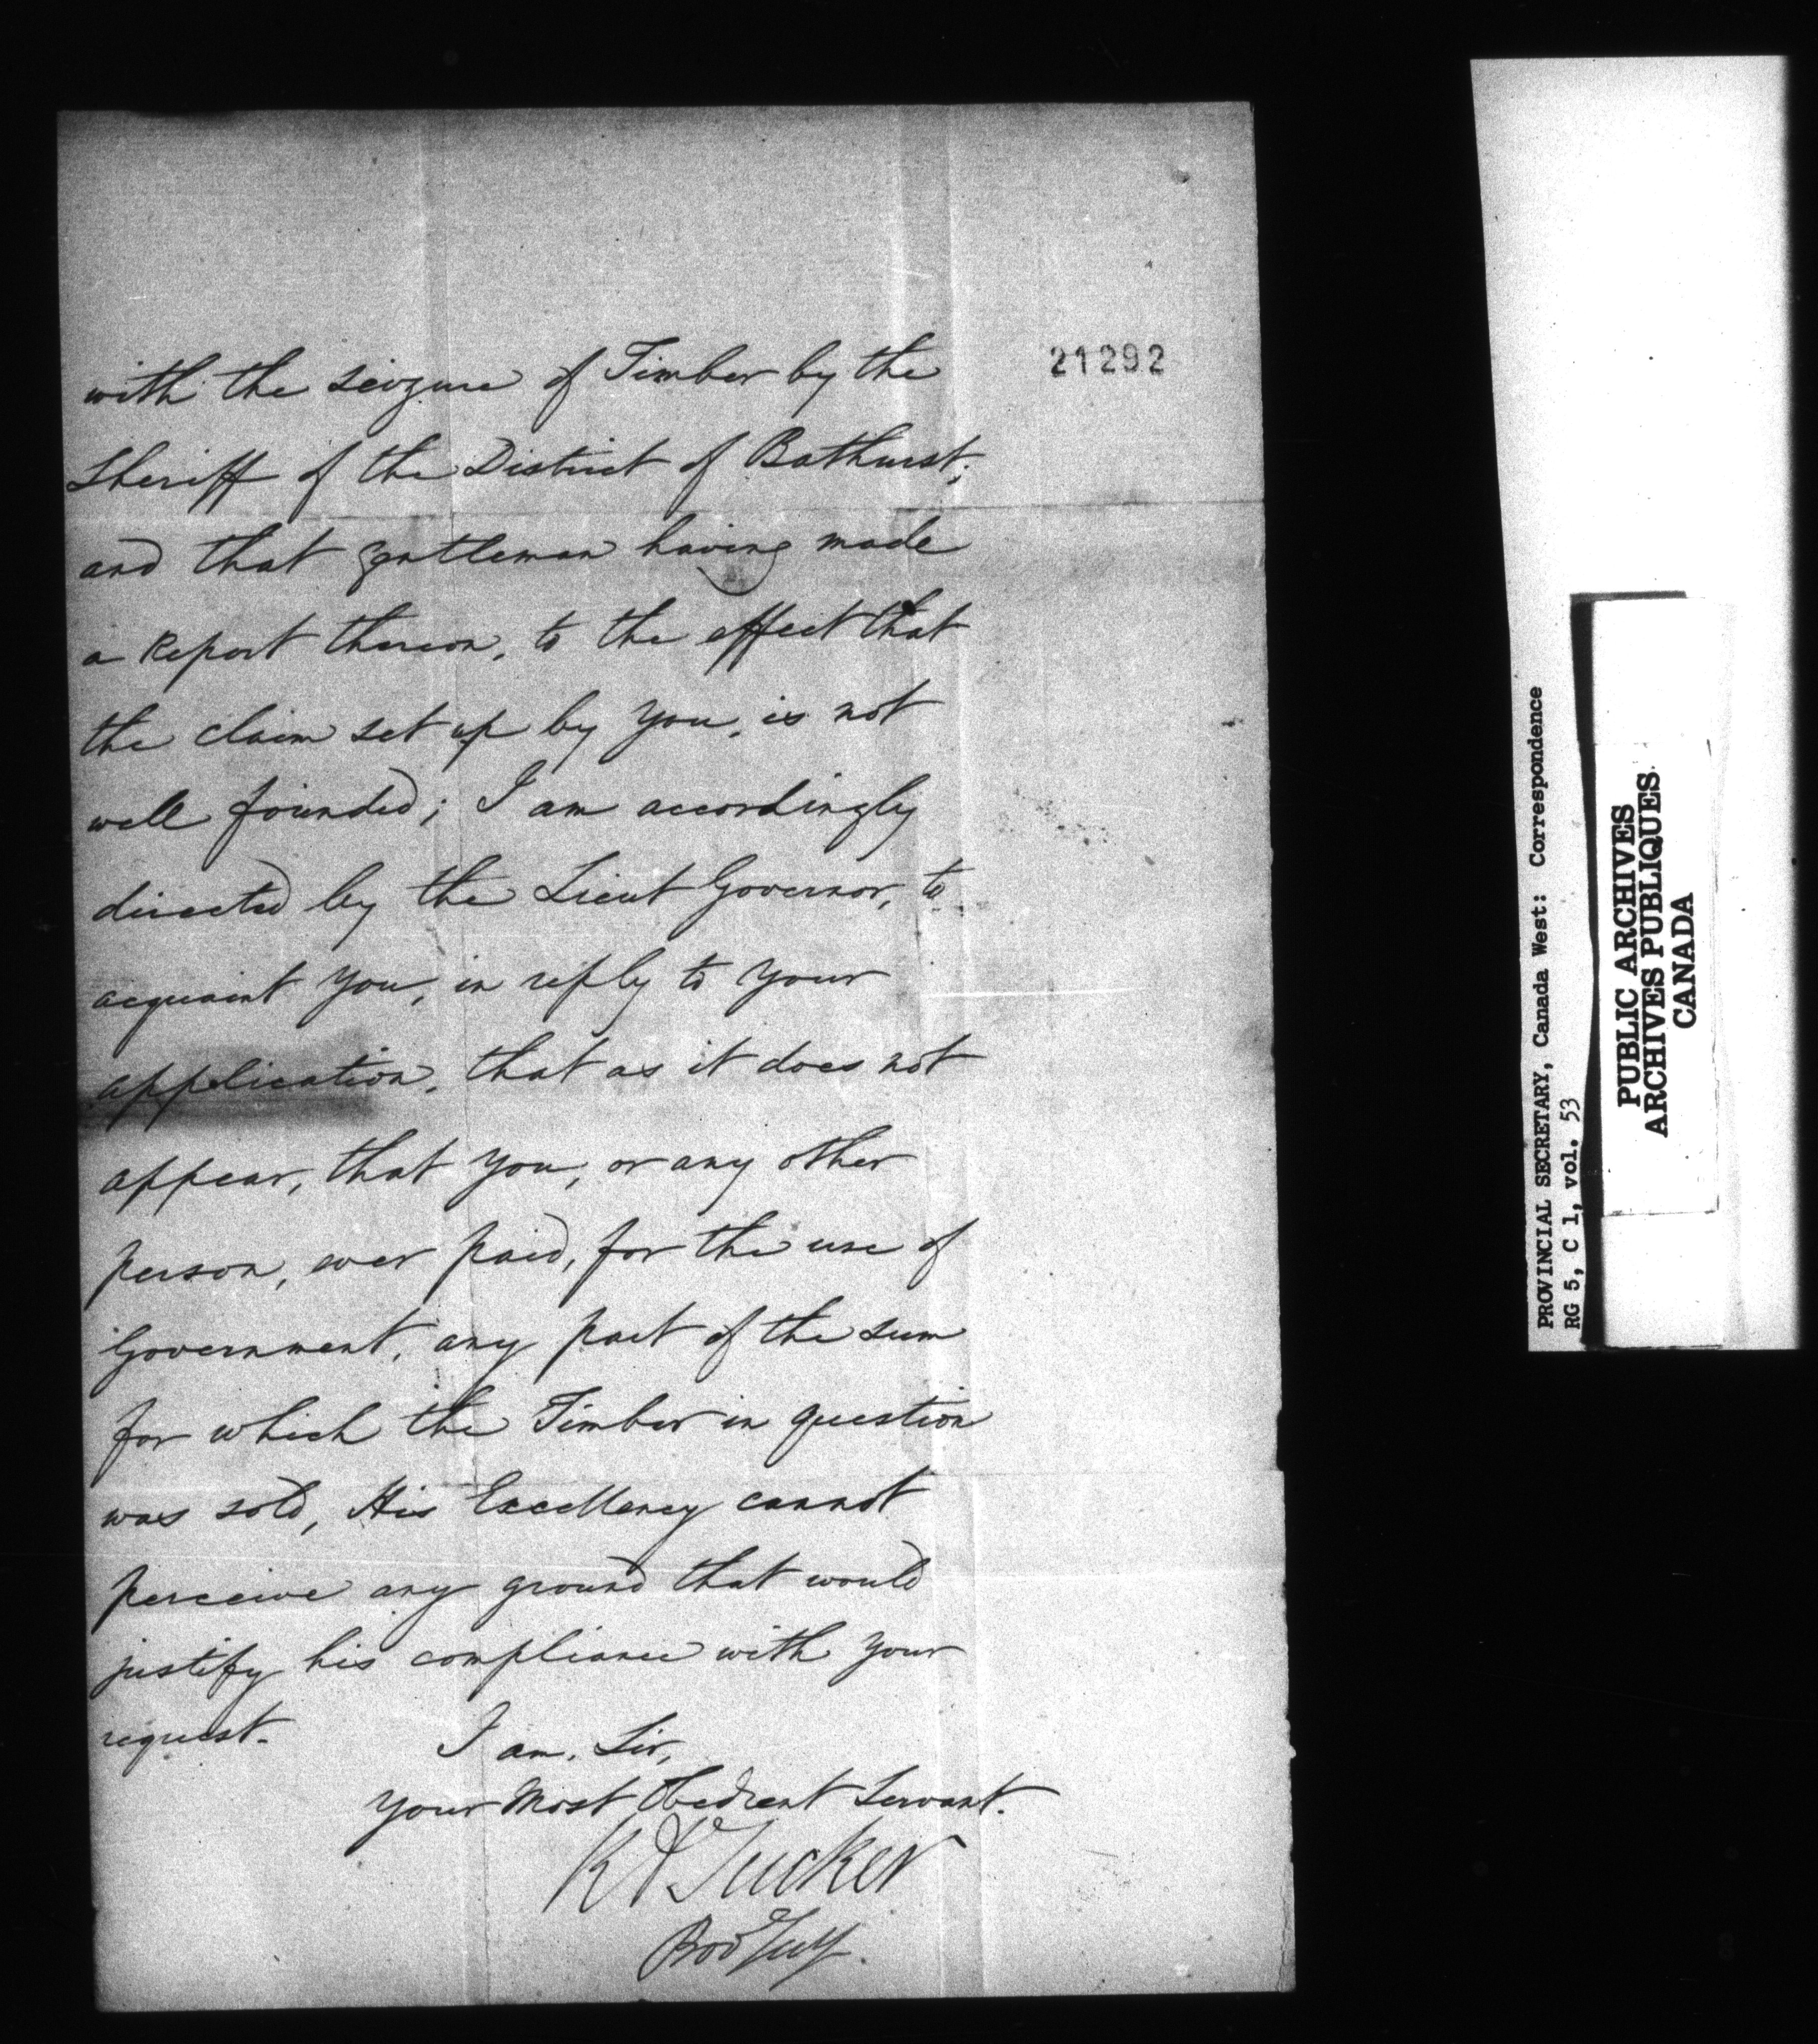 21292
with the seizure of Timber by the
Sheriff of the District of Bathurst;
and that gentleman having made
a Report thereon, to the effect that
the claim set up by you, is not
well founded; I am accordingly
directed by the Lieut Governor, to
acquaint you, in reply to your
application, that as it does not
appear, that you, or any other
person, ever paid, for the use of
Government, any part of the sum
for which the Timber in question
was sold, His Excellency cannot
perceive any ground that would
justify his compliance with your
request.
I am, Sir,
your Most Obedient Servant.
R A Tucker
Prov Secy.
PROVINCIAL SECRETARY, Canada West: Correspondence
RG 5, C 1, vol. 53
PUBLIC ARCHIVES
ARCHIVES PUBLIQUES
CANADA